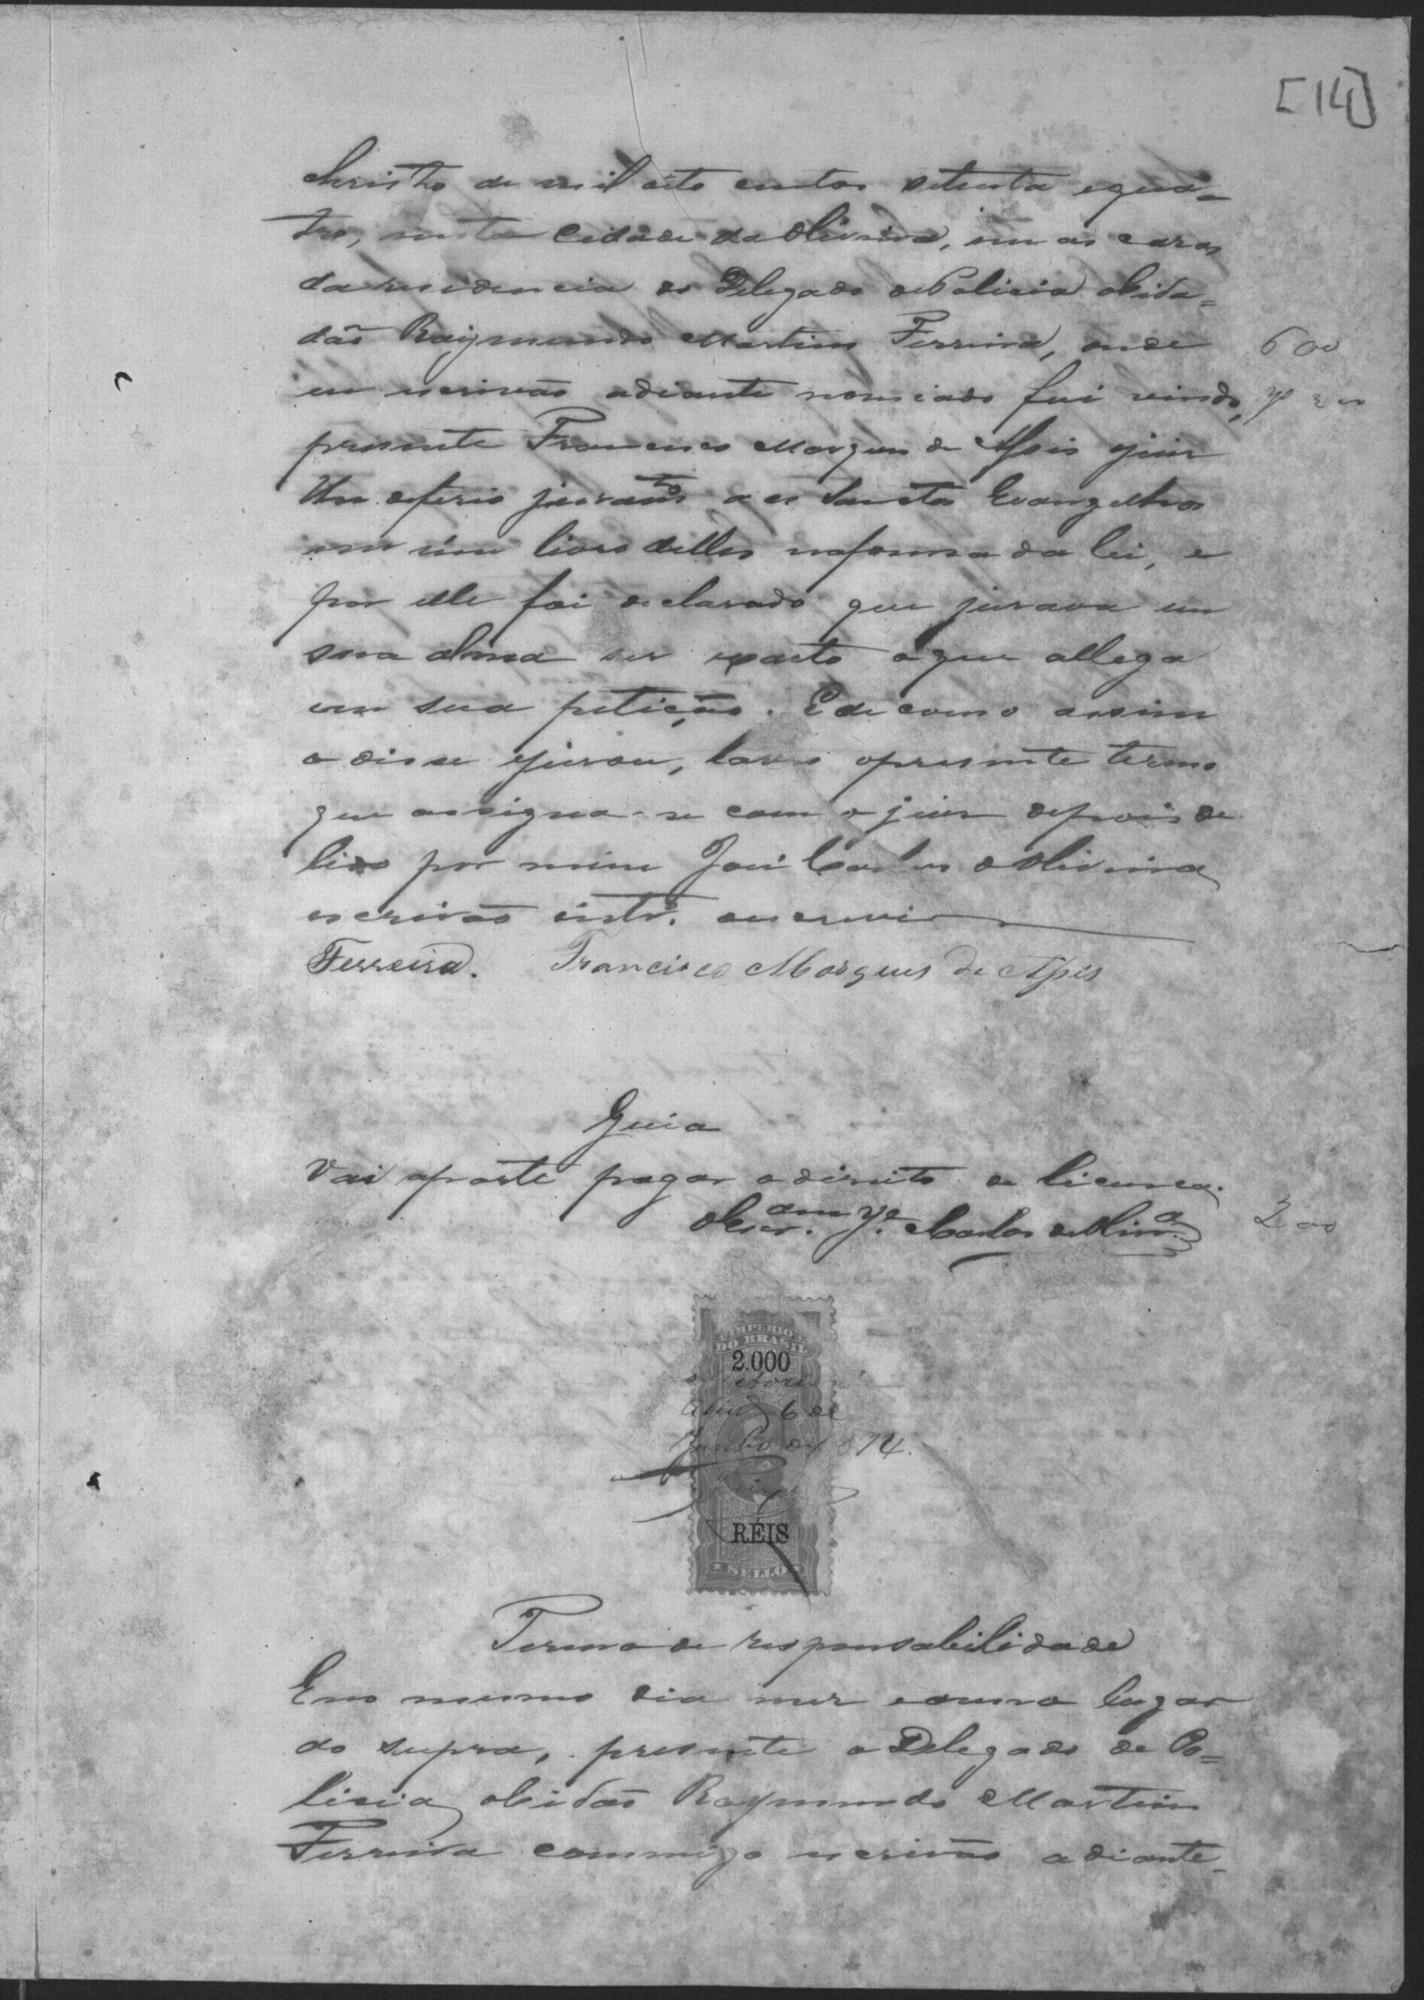 [14]
Christo de mil oito centos setenta e qua=
tro, nesta Cidade da Oliveira, em as caras
da residencia do Delegado de Policia o Cida=
dão Raymundo Martins Ferreira, onde
600
eu escrivão adiante nomeado fui vindo,
presente Francisco Marques de Assis o juiz
lhe deferio juramto aos Santos Evangelhos
em um livro delles na forma da lei, e
por elle foi declarado que jurava em
sua alma ser exacto o que allega
em sua petição. E de como assim
o disse e jurou, lavro o presente termo
que assigna-se com o juiz depois de
lido por mim José Carlos d'Oliveira
escrivão intr.o o escrevi
Ferreira. Francisco Marques de Assis
Guia
Vai a parte pagar o direito de licença.
O Escr.am J.e Carlos de Olivr.a
200
IMPERIO
DO BRASIL
2.000
6 de
Junho de 1874.
RÉIS
SELLO
Termo de responsabilidade
Em mesmo dia mez e anno e lugar
do supra, presente o Delegado de Po=
licia o Cidadão Raymundo Martins
Ferreira commigo escrivão adiante